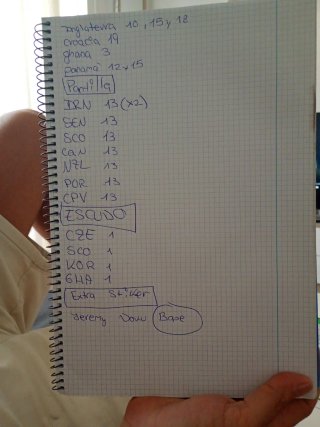 Inglaterra 10, 15 y 18
croacia 19
ghana 3
panamá 12 y 15
Pandilla
IRN 13 (x2)
SEN 13
SCO 13
Can 13
NZL 13
POR 13
CPV 13
ESCUDO
CZE 1
SCO 1
KOR 1
GHA 1
Extra sticker
Jeremy Doku Base